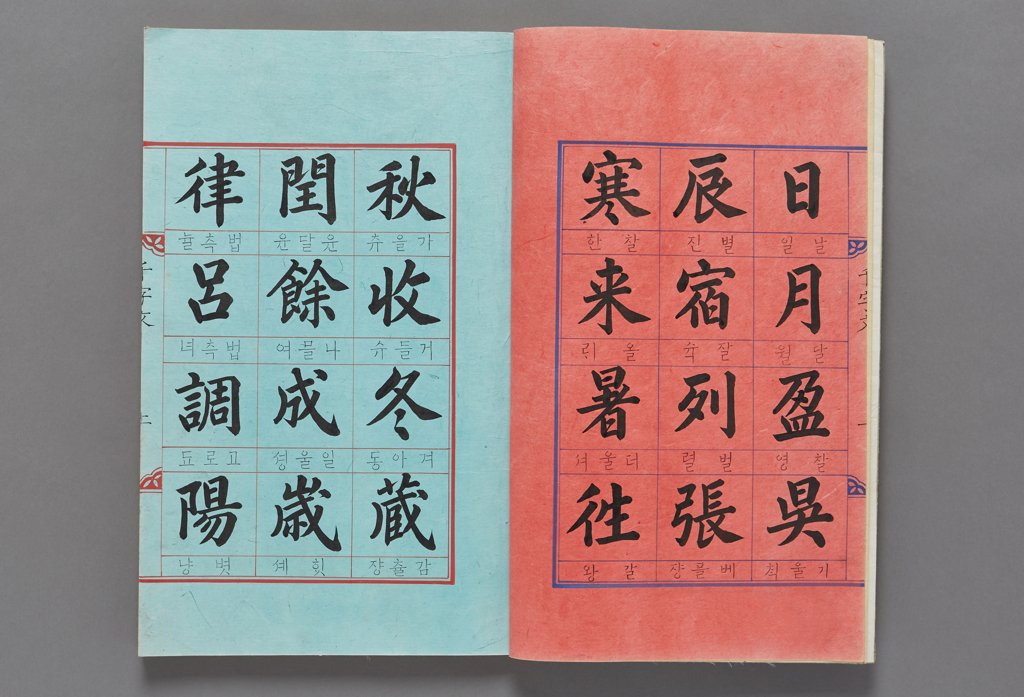 日
날 일
月
달 월
盈
찰 영
吳
기울 칙
辰
별 진
宿
잘 슉
列
벌 렬
張
베플 쟝
寒
찰 한
来
올 릐
暑
더울 셔
往
갈 왕
秋
가을 츄
收
거들 슈
冬
겨아 동
蔵
감츌 쟝
閏
윤달 윤
餘
나믈 여
成
일울 성
歳
힛 셰
律
법측 뉼
呂
법측 녀
調
고로 됴
陽
볏 냥
千字文